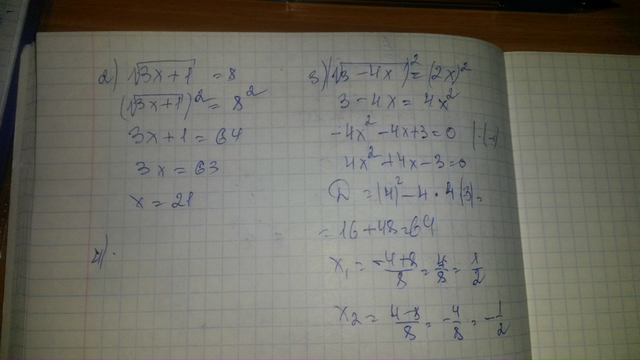 2) √3x+1 = 8
(√3x+1)² = 8²
3x+1 = 64
3x = 63
x = 21
4)
3) (√3-4x)² = (2x)²
3-4x = 4x²
-4x²-4x+3=0 |·(-)
4x²+4x-3=0
D = (4)²-4·4(3)=
=16+48=64
x₁ = -4+8/8 = 4/8 = 1/2
x₂ = 4-8/8 = -4/8 = -1/2